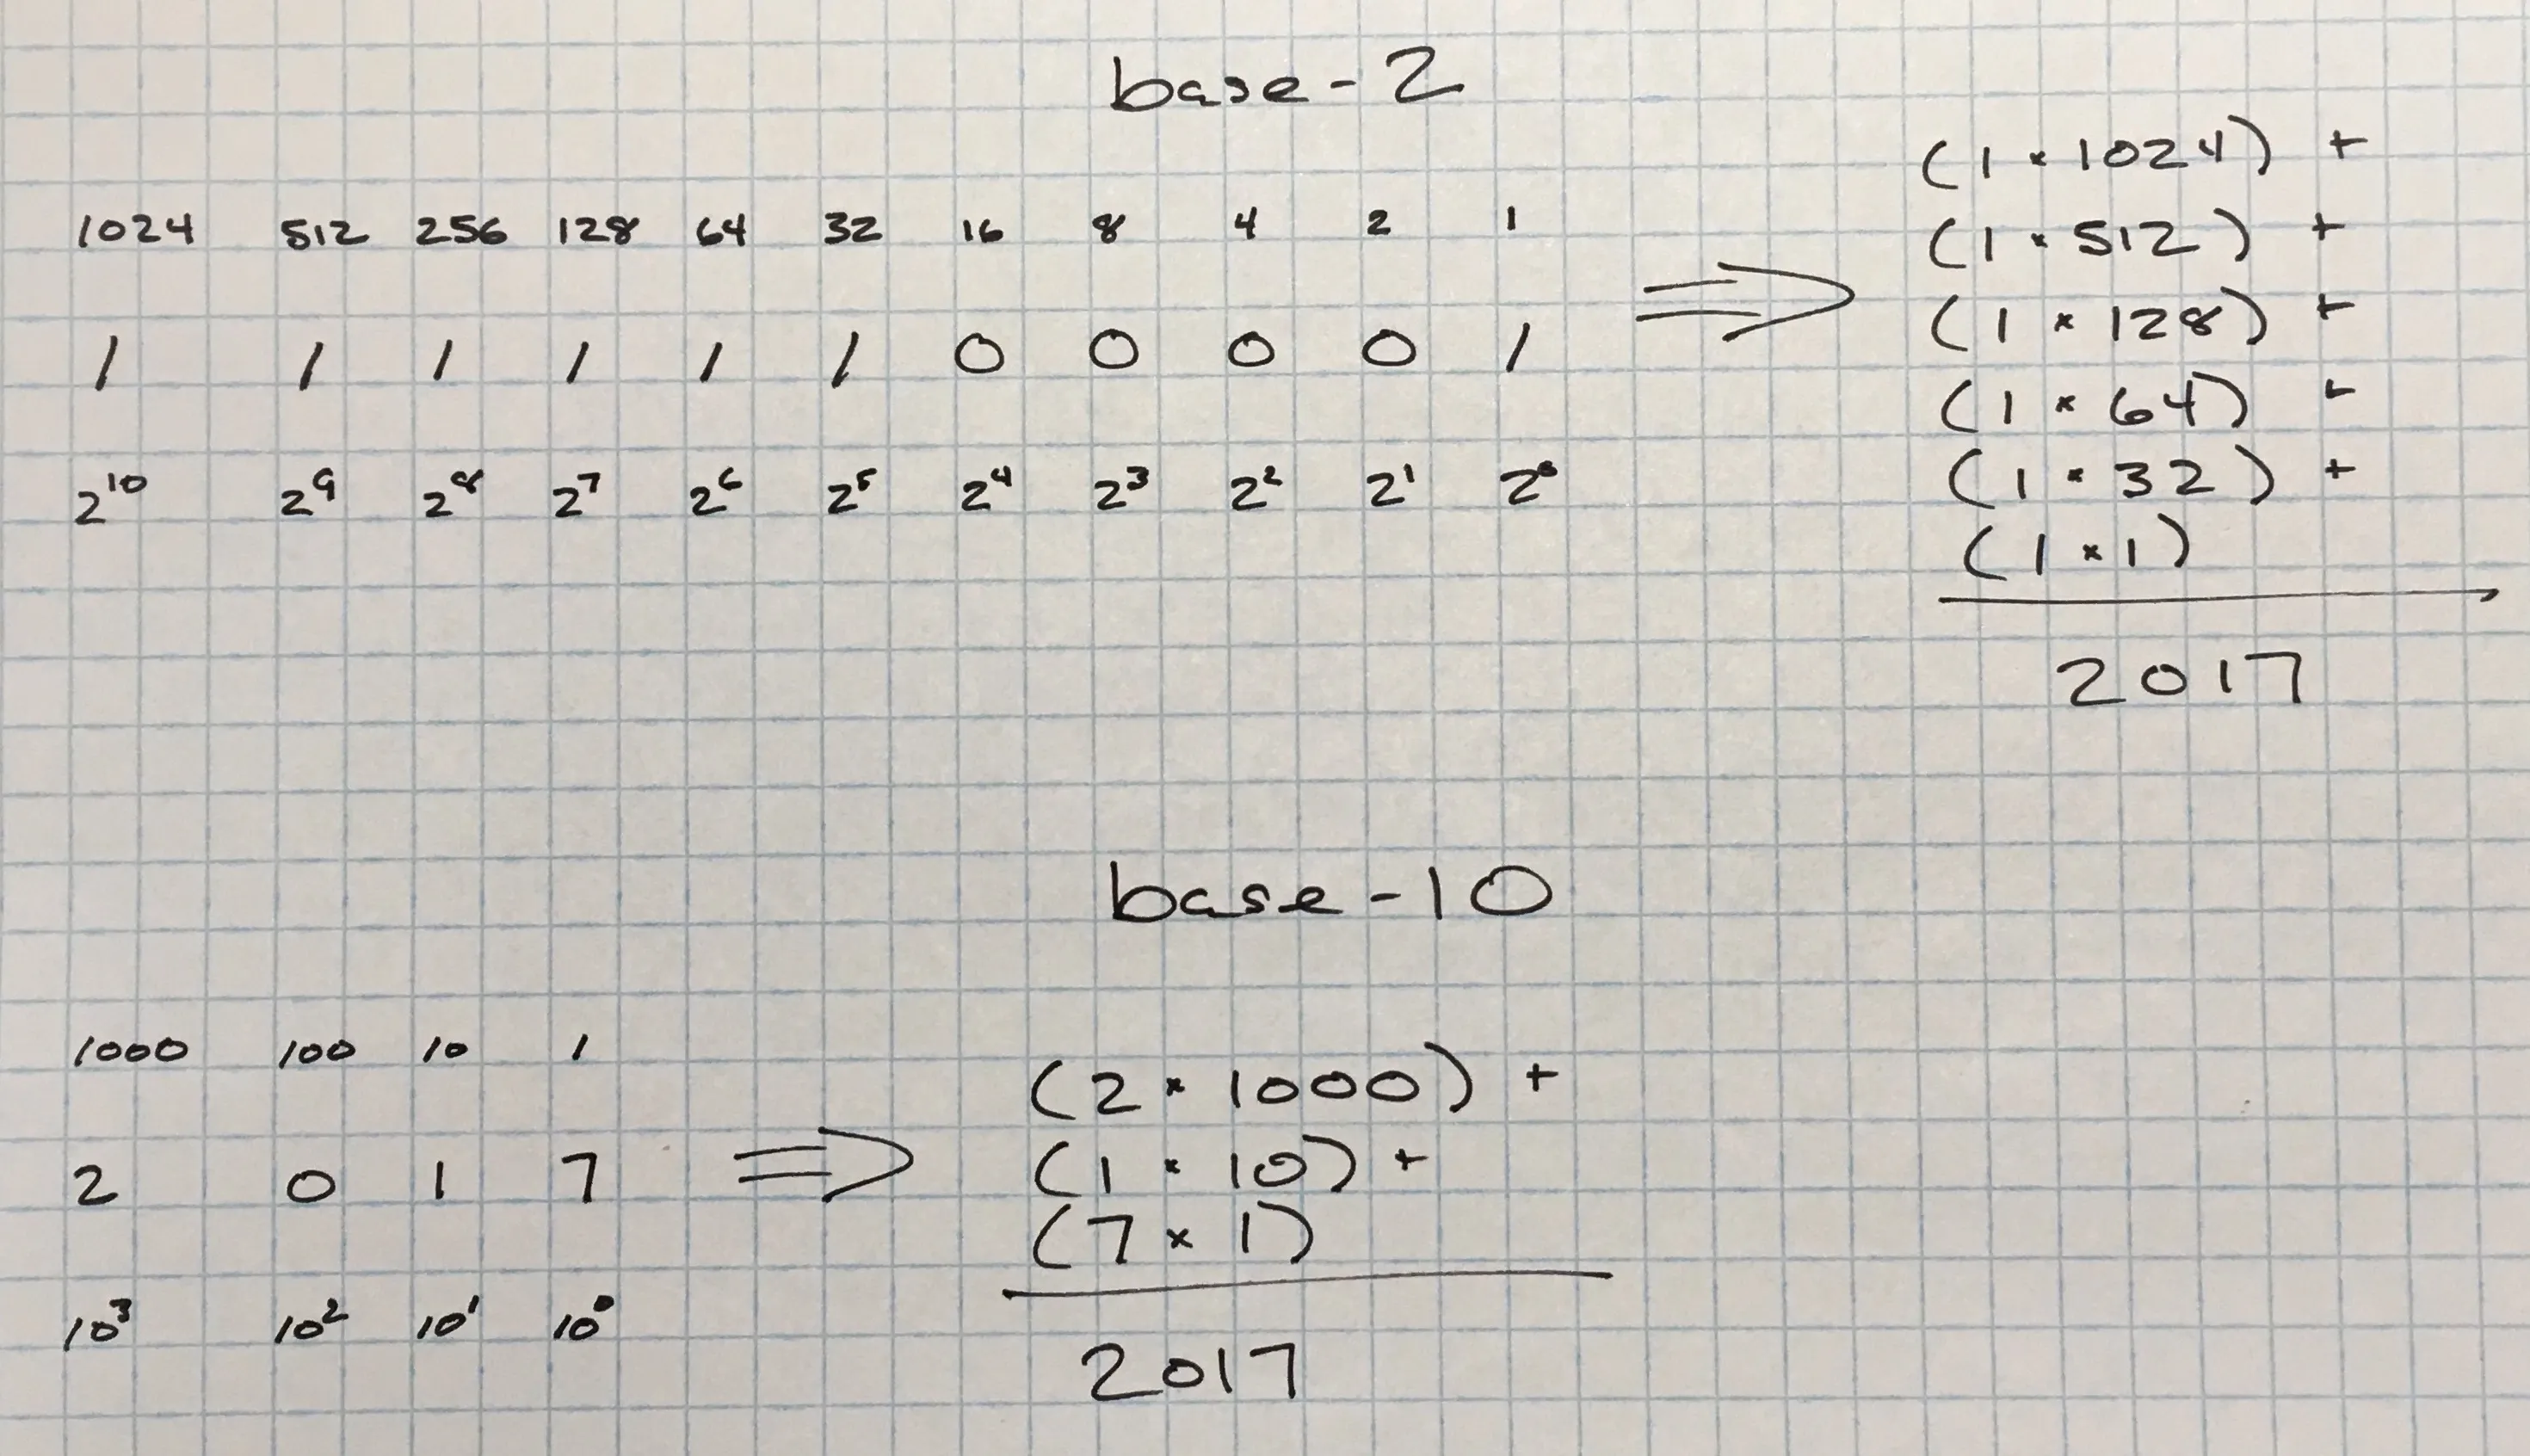 base-2
1024 512 256 128 64 32 16 8 4 2 1
1 1 1 1 1 1 0 0 0 0 1
2¹⁰ 2⁹ 2⁸ 2⁷ 2⁶ 2⁵ 2⁴ 2³ 2² 2¹ 2⁰
⇒
(1 × 1024) +
(1 × 512) +
(1 × 128) +
(1 × 64) +
(1 × 32) +
(1 × 1)
2017
base-10
1000 100 10 1
2 0 1 7
10³ 10² 10¹ 10⁰
⇒
(2 × 1000) +
(1 × 10) +
(7 × 1)
2017